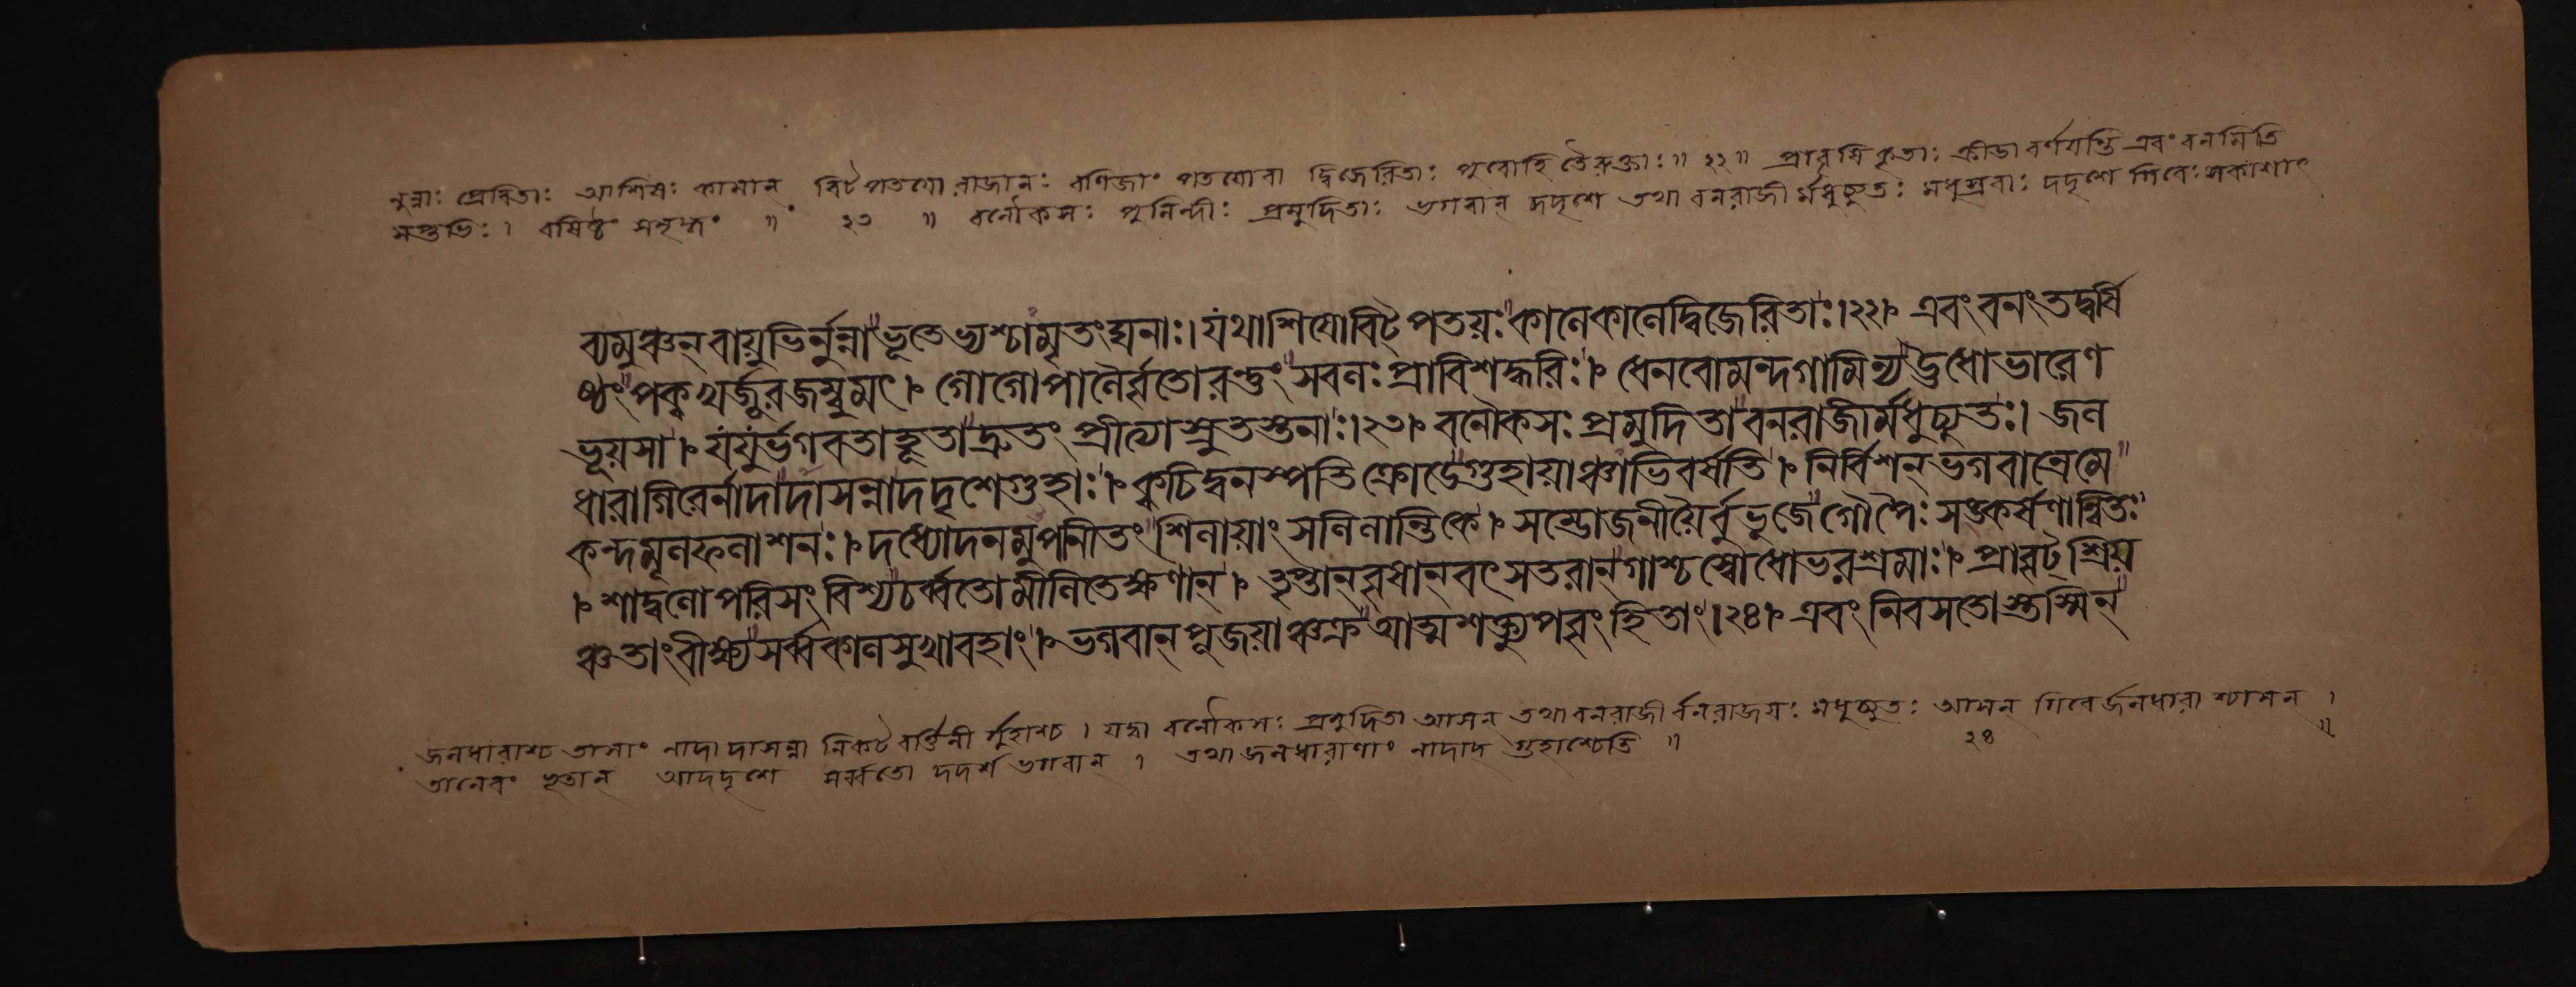 নুন্নাঃ প্রেরিতাঃ আশিষঃ কামান্ বিট্পতয়ো রাজানঃ বণিজাং পতয়োবা দ্বিজেরিতাঃ পুরোহিতৈরুক্তাঃ॥ ২২॥ প্রাবৃষিকৃতাঃ ক্রীডা বর্ণয়তি এবং বনমিতি
সপ্তভিঃ। বর্ষিষ্ঠং সমৃদ্ধং॥ ২৩॥ বনৌকসঃ পুলিন্দীঃ প্রমুদিতাঃ ভগবান্ দদৃশে তথা বনরাজীর্মধুচ্যুতঃ মধুস্রবাঃ দদৃশে গিরেঃ সকাশাৎ
ব্যমুঞ্চন্ বায়ুভির্নুন্নাভূতেভ্যশ্চামৃতংঘনাঃ। যথাশিষোবিট্পতয়ঃকালেকালেদ্বিজেরিতাঃ।২২। এবং বনংতদ্বর্ষি
ষ্ঠংপক্বখর্জূরজম্বুমৎ। গোগোপালৈর্বৃতোরন্তুংসবলঃপ্রাবিশদ্ধরিঃ। ধেনবোমন্দগামিন্যঊধোভারেণ
ভূয়সা। যযুর্ভগবতাহূতাদ্রুতং প্রীত্যাস্নুতস্তনাঃ।২৩। বনৌকসঃ প্রমুদিতাবনরাজীর্মধুচ্যুতঃ। জল
ধারাগিরের্নাদাদাসন্নাদদৃশেগুহাঃ। ক্বচিদ্বনস্পতিক্রোড়েগুহায়াঞ্চাভিবর্ষতি। নির্বিশন্ ভগবান্রেমে
কন্দমূলফলাশনঃ। দধ্যোদনমুপনীতংশিলায়াং সলিলান্তিকে। সম্ভোজনীয়ৈর্বুভুজেগৌপৈঃ সঙ্কর্ষণান্বিতঃ
। শাদ্বলোপরিসংবিশ্যচর্ব্বতোমীলিতেক্ষণান্। তৃপ্তান্বৃষান্ বৎসতরান্গাশ্চস্বোধোভরশ্রমাঃ। প্রাবৃট্শ্রিয়
ঞ্চতাংবীক্ষ্যসর্ব্বকালসুখাবহাং। ভগবান্ পূজয়াঞ্চক্রআত্মশক্ত্যুপবৃংহিতাং।২৪। এবং নিবসতোস্তস্মিন্
জলধারাশ্চ তাসাং নাদাদাসন্না নিকটবর্ত্তিনী র্গুহাশ্চ। যদ্বা বনৌকসঃ প্রমুদিতা আসন্ তথা বনরাজীর্বনরাজয়ঃ মধুচ্যুতঃ আসন্ গিরের্জলধারা শ্চাসন্।
তানেবং ভূতান্ আদদৃশে সর্ব্বতো দদর্শ ভগবান্। তথা জলধারাণাং নাদাদ্ গুহাশ্চেতি॥ ২৪॥